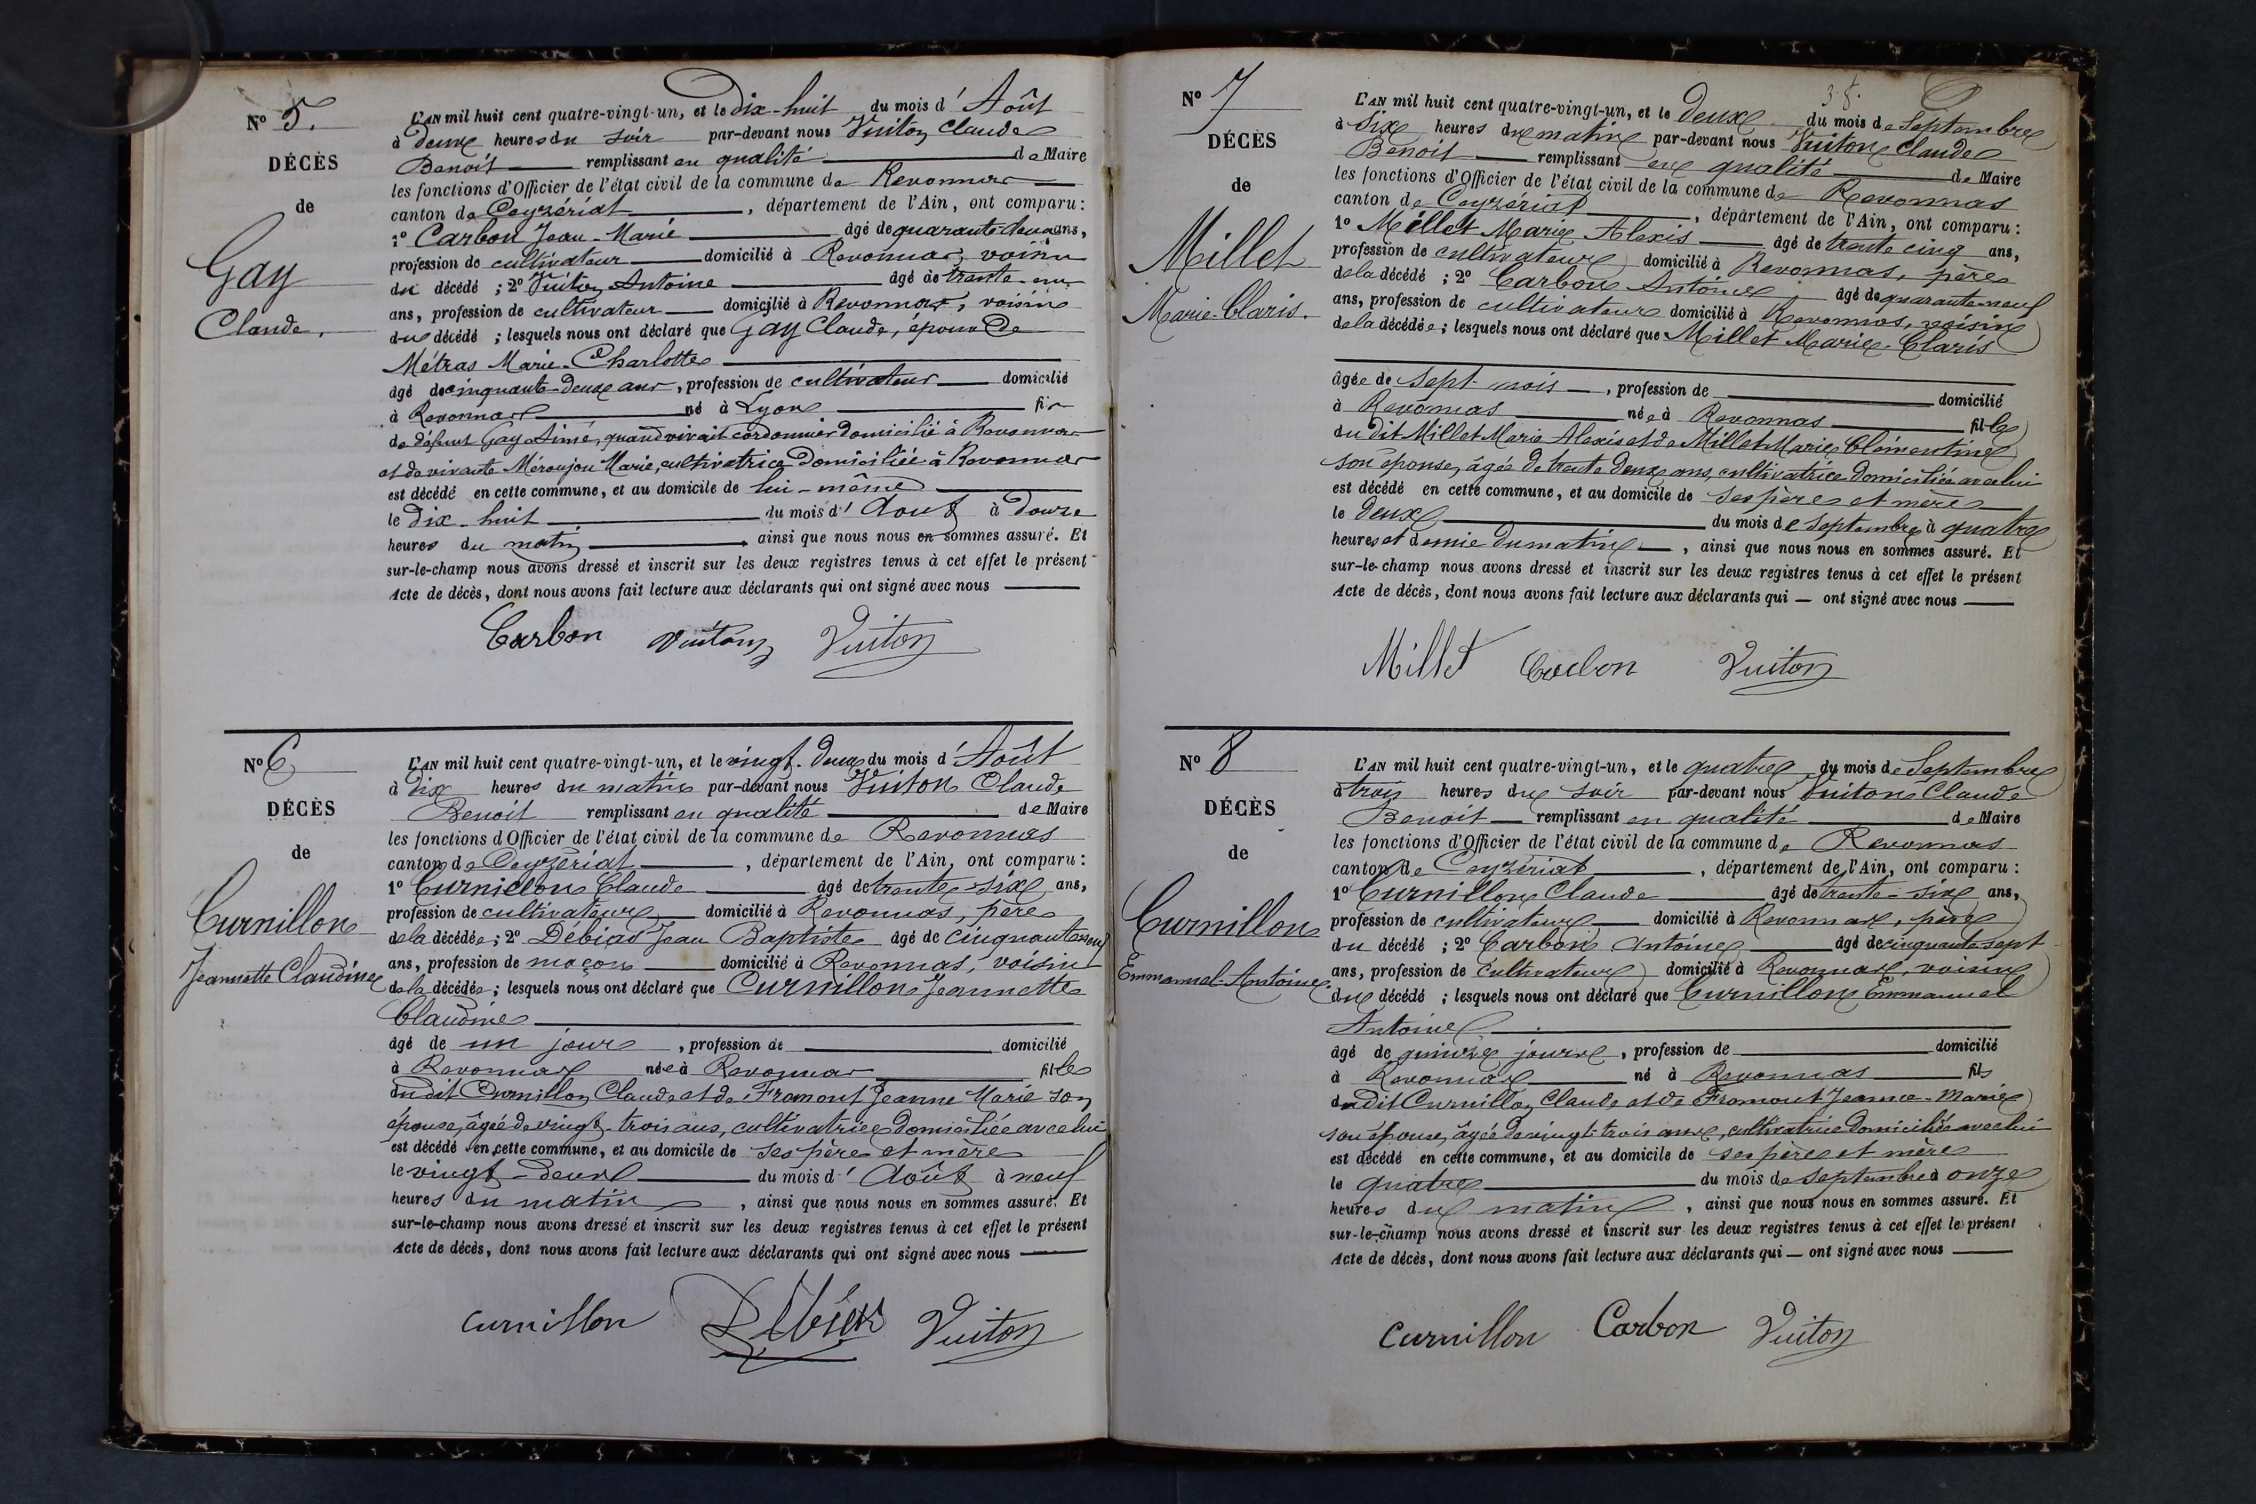 N° 5.
DÉCÈS
de
Gay
Claude.
L'AN mil huit cent quatre-vingt-un, et le Dix-huit du mois d'Août
à deux heures du soir par-devant nous Vuiton Claude
Benoit remplissant en qualité de Maire
les fonctions d'Officier de l'état civil de la commune de Revonnas
canton de Ceyzériat, département de l'Ain, ont comparu:
1° Carbon Jean-Marie âgé de quarante-deux ans,
profession de cultivateur domicilié à Revonnas, voisin
du décédé ; 2° Vuiton Antoine âgé de trente-un
ans, profession de cultivateur domicilié à Revonnas, voisin
du décédé ; lesquels nous ont déclaré que Gay Claude, époux de
Métras Marie-Charlotte
âgé de cinquante-deux ans, profession de cultivateur domicilié
à Revonnas né à Lyon fils
de défunt Gay Aimé, quand vivait cordonnier domicilié à Revonnas
et de vivante Méroujou Marie, cultivatrice domiciliée à Revonnas
est décédé en cette commune, et au domicile de lui-même
le dix-huit du mois d'Aout à douze
heures du matin, ainsi que nous nous en sommes assuré. Et
sur-le-champ nous avons dressé et inscrit sur les deux registres tenus à cet effet le présent
Acte de décès, dont nous avons fait lecture aux déclarants qui ont signé avec nous
Carbon Vuiton Vuiton
N° 6
DÉCÈS
de
Curnillon
Jeannette Claudine
L'AN mil huit cent quatre-vingt-un, et le vingt-deux du mois d'Août
à dix heures du matin par-devant nous Vuiton Claude
Benoit remplissant en qualité de Maire
les fonctions d'Officier de l'état civil de la commune de Revonnas
canton de Ceyzériat, département de l'Ain, ont comparu:
1° Curnillon Claude âgé de trente-six ans,
profession de cultivateur domicilié à Revonnas, père
de la décédée ; 2° Débias Jean Baptiste âgé de cinquante neuf
ans, profession de maçon domicilié à Revonnas, voisin
de la décédée ; lesquels nous ont déclaré que Curnillon Jeannette
Claudine
âgé de un jour, profession de domicilié
à Revonnas née à Revonnas fille
dudit Curnillon Claude et de Fromont Jeanne Marie son
épouse, âgée de vingt-trois ans, cultivatrice domiciliée avec lui
est décédé en cette commune, et au domicile de ses père et mère
le vingt-deux du mois d'Août à neuf
heures du matin, ainsi que nous nous en sommes assuré. Et
sur-le-champ nous avons dressé et inscrit sur les deux registres tenus à cet effet le présent
Acte de décès, dont nous avons fait lecture aux déclarants qui ont signé avec nous
Curnillon Débias Vuiton
38.
N° 7
DÉCÈS
de
Millet
Marie-Claris.
L'AN mil huit cent quatre-vingt-un, et le deux du mois de Septembre
à six heures du matin par-devant nous Vuiton Claude
Benoit remplissant en qualité de Maire
les fonctions d'Officier de l'état civil de la commune de Revonnas
canton de Ceyzériat, département de l'Ain, ont comparu:
1° Millet Marie Alexis âgé de trente cinq ans,
profession de cultivateur domicilié à Revonnas, père
de la décédé ; 2° Carbon Antoine âgé de quarante neuf
ans, profession de cultivateur domicilié à Revonnas, voisin
de la décédée ; lesquels nous ont déclaré que Millet Marie-Claris
âgée de sept mois, profession de domicilié
à Revonnas née à Revonnas fille
du dit Millet Marie Alexis et de Millet Marie Clémentine
son épouse, âgée de trente deux ans, cultivatrice domiciliée avec lui
est décédé en cette commune, et au domicile de ses père et mère
le deux du mois de Septembre à quatre
heures et demie du matin, ainsi que nous nous en sommes assuré. Et
sur-le-champ nous avons dressé et inscrit sur les deux registres tenus à cet effet le présent
Acte de décès, dont nous avons fait lecture aux déclarants qui — ont signé avec nous
Millet Carbon Vuiton
N° 8
DÉCÈS
de
Curnillon
Emmanuel-Antoine
L'AN mil huit cent quatre-vingt-un, et le quatre du mois de Septembre
à trois heures du soir par-devant nous Vuiton Claude
Benoit remplissant en qualité de Maire
les fonctions d'Officier de l'état civil de la commune de Revonnas
canton de Ceyzériat, département de l'Ain, ont comparu:
1° Curnillon Claude âgé de trente-six ans,
profession de cultivateur domicilié à Revonnas, père
du décédé ; 2° Carbon Antoine âgé de cinquante-sept
ans, profession de cultivateur domicilié à Revonnas, voisin
du décédé ; lesquels nous ont déclaré que Curnillon Emmanuel
Antoine
âgé de quinze jours, profession de domicilié
à Revonnas né à Revonnas fils
dudit Curnillon Claude et de Fromont Jeanne-Marie
son épouse, âgée de vingt-trois ans, cultivatrice domiciliée avec lui
est décédé en cette commune, et au domicile de ses père et mère
le quatre du mois de Septembre à onze
heures du matin, ainsi que nous nous en sommes assuré. Et
sur-le-champ nous avons dressé et inscrit sur les deux registres tenus à cet effet le présent
Acte de décès, dont nous avons fait lecture aux déclarants qui — ont signé avec nous
Curnillon Carbon Vuiton